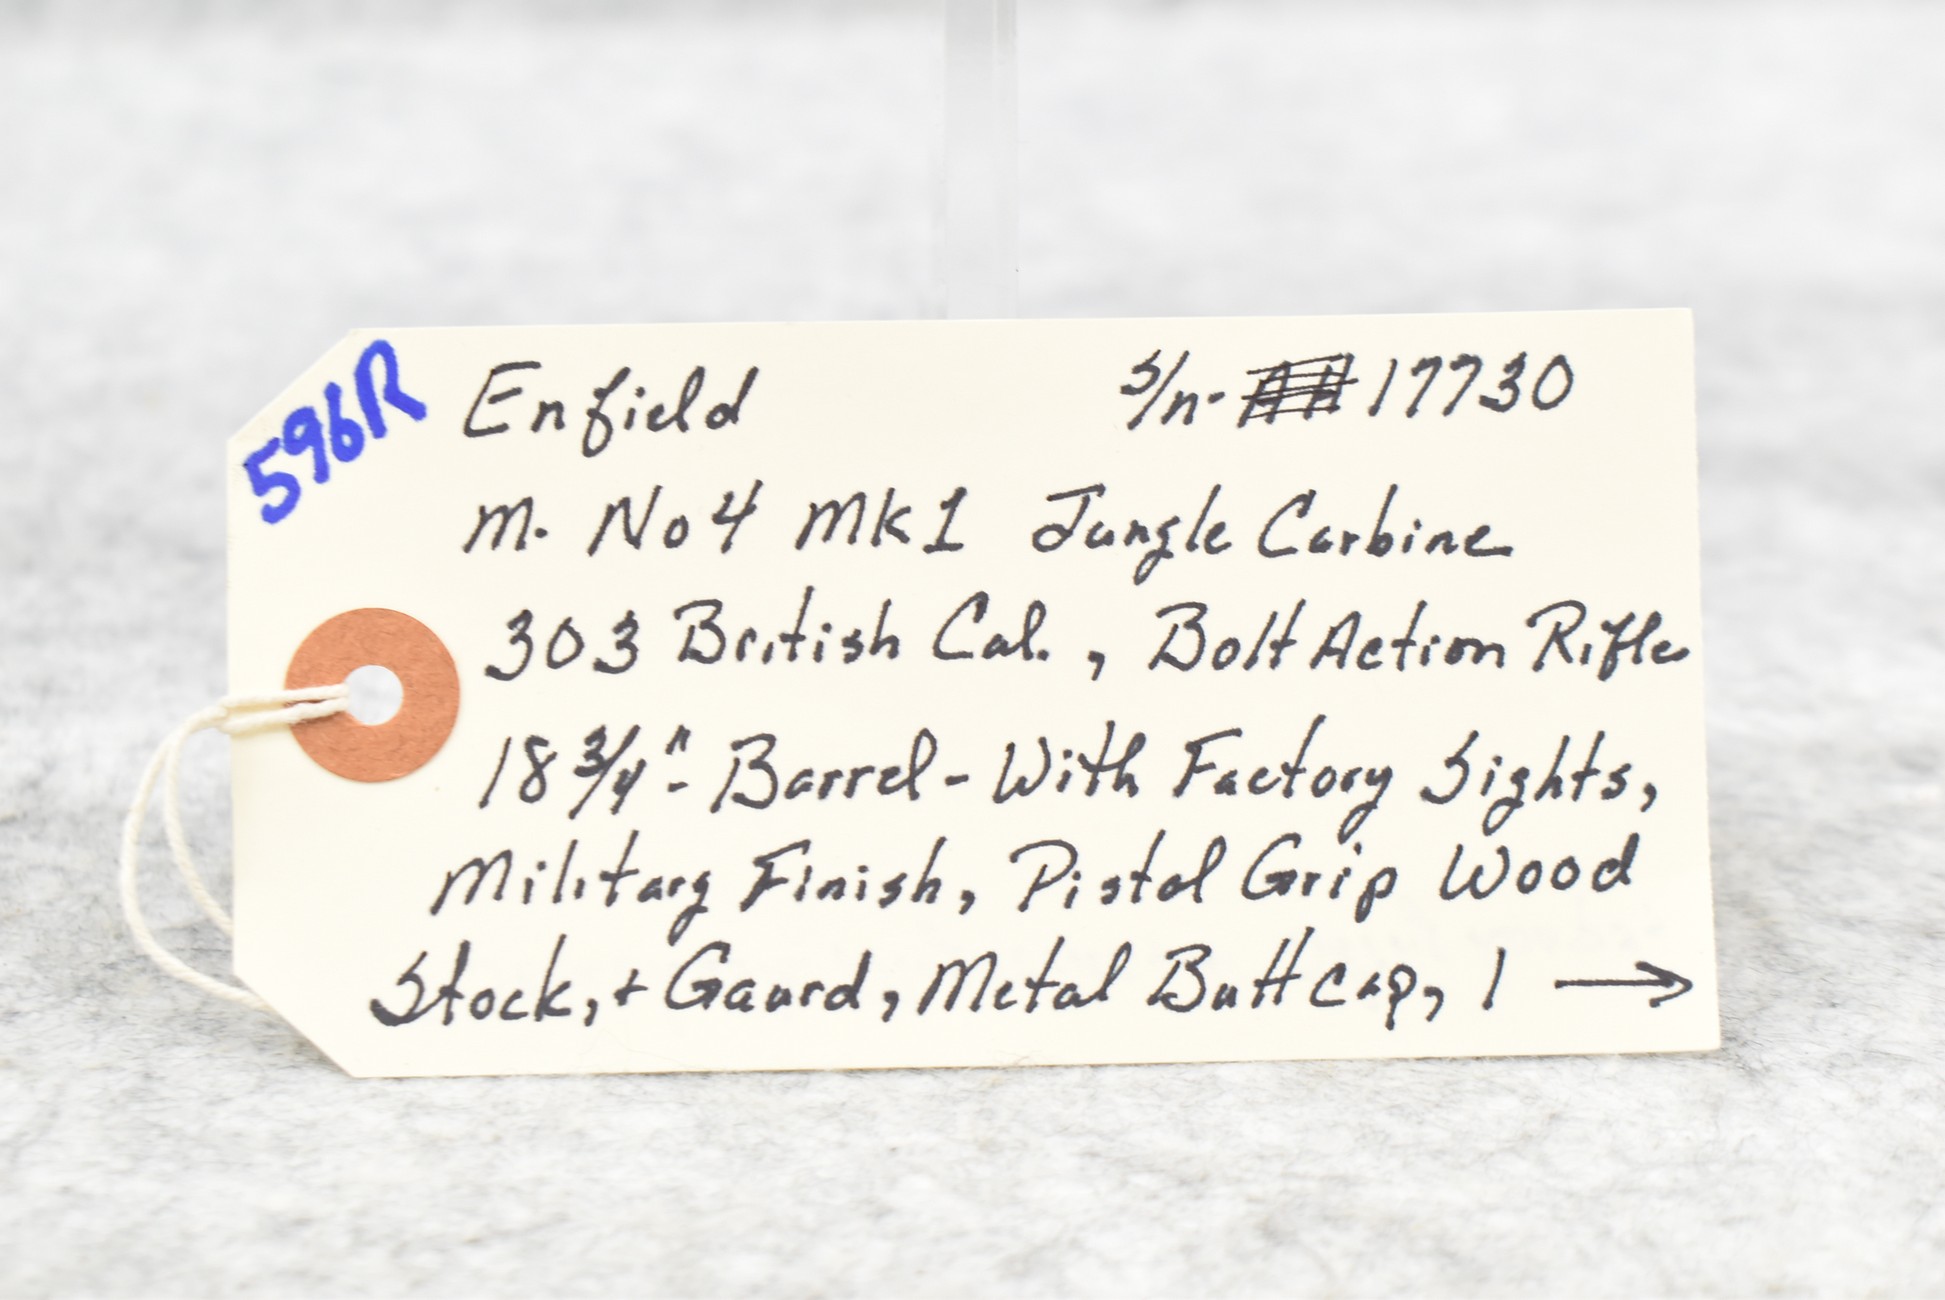 596R
Enfield S/n- 17730
M. No 4 MK1 Jungle Carbine
303 British Cal., Bolt Action Rifle
18 3/4"- Barrel - With Factory Sights,
Military Finish, Pistol Grip Wood
Stock, + Gaurd, Metal Butt cap, 1 →